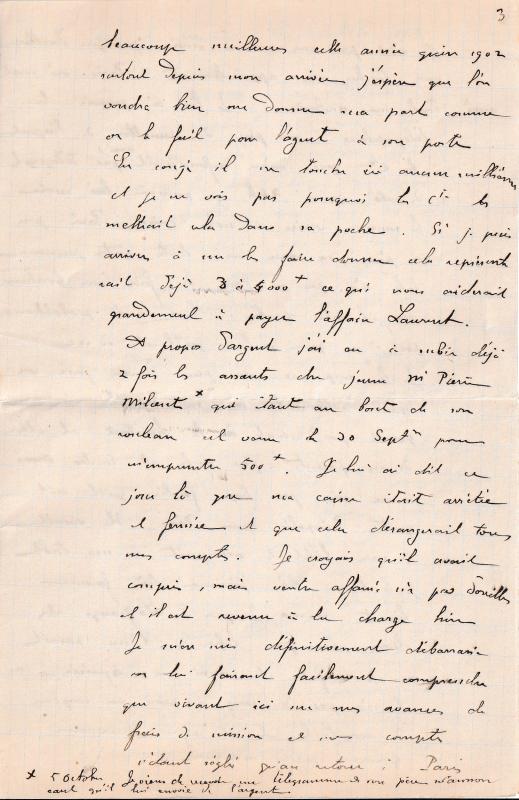 3
beaucoup meilleures cette année qu'en 1902
surtout depuis mon arrivée j'espère que l'on
voudra bien me donner ma part comme
on le fait pour l'agent à son poste
En congé il ne touche ici aucun millième
et je ne vois pas pourquoi la Cie les
mettrait cela dans sa poche. Si je puis
arriver à me les faire donner cela représente
rait déjà 3 à 4000 + ce qui nous aiderait
grandement à payer l'affaire Laurent.
A propos d'argent j'ai eu à subir déjà
2 fois les assauts du jeune M Pierre
x qui étant au bout de son
rouleau est venu le 30 Septre pour
m'emprunter 500 +. Je lui ai dit ce
jour là que ma caisse était arrêtée
et fermée et que cela dérangerait tous
mes comptes. Je croyais qu'il avait
compris, mais ventre affamé n'a pas d'oreilles
et il est revenu à la charge hier
Je m'en suis définitivement débarrassé
en lui faisant facilement comprendre
que vivant ici sur mes avances de
frais de mission et mes comptes
n'étant réglés qu'au retour à Paris
x 5 Octobre Je viens de recevoir un télégramme de son père m'annon
cant qu'il lui envoie de l'argent.